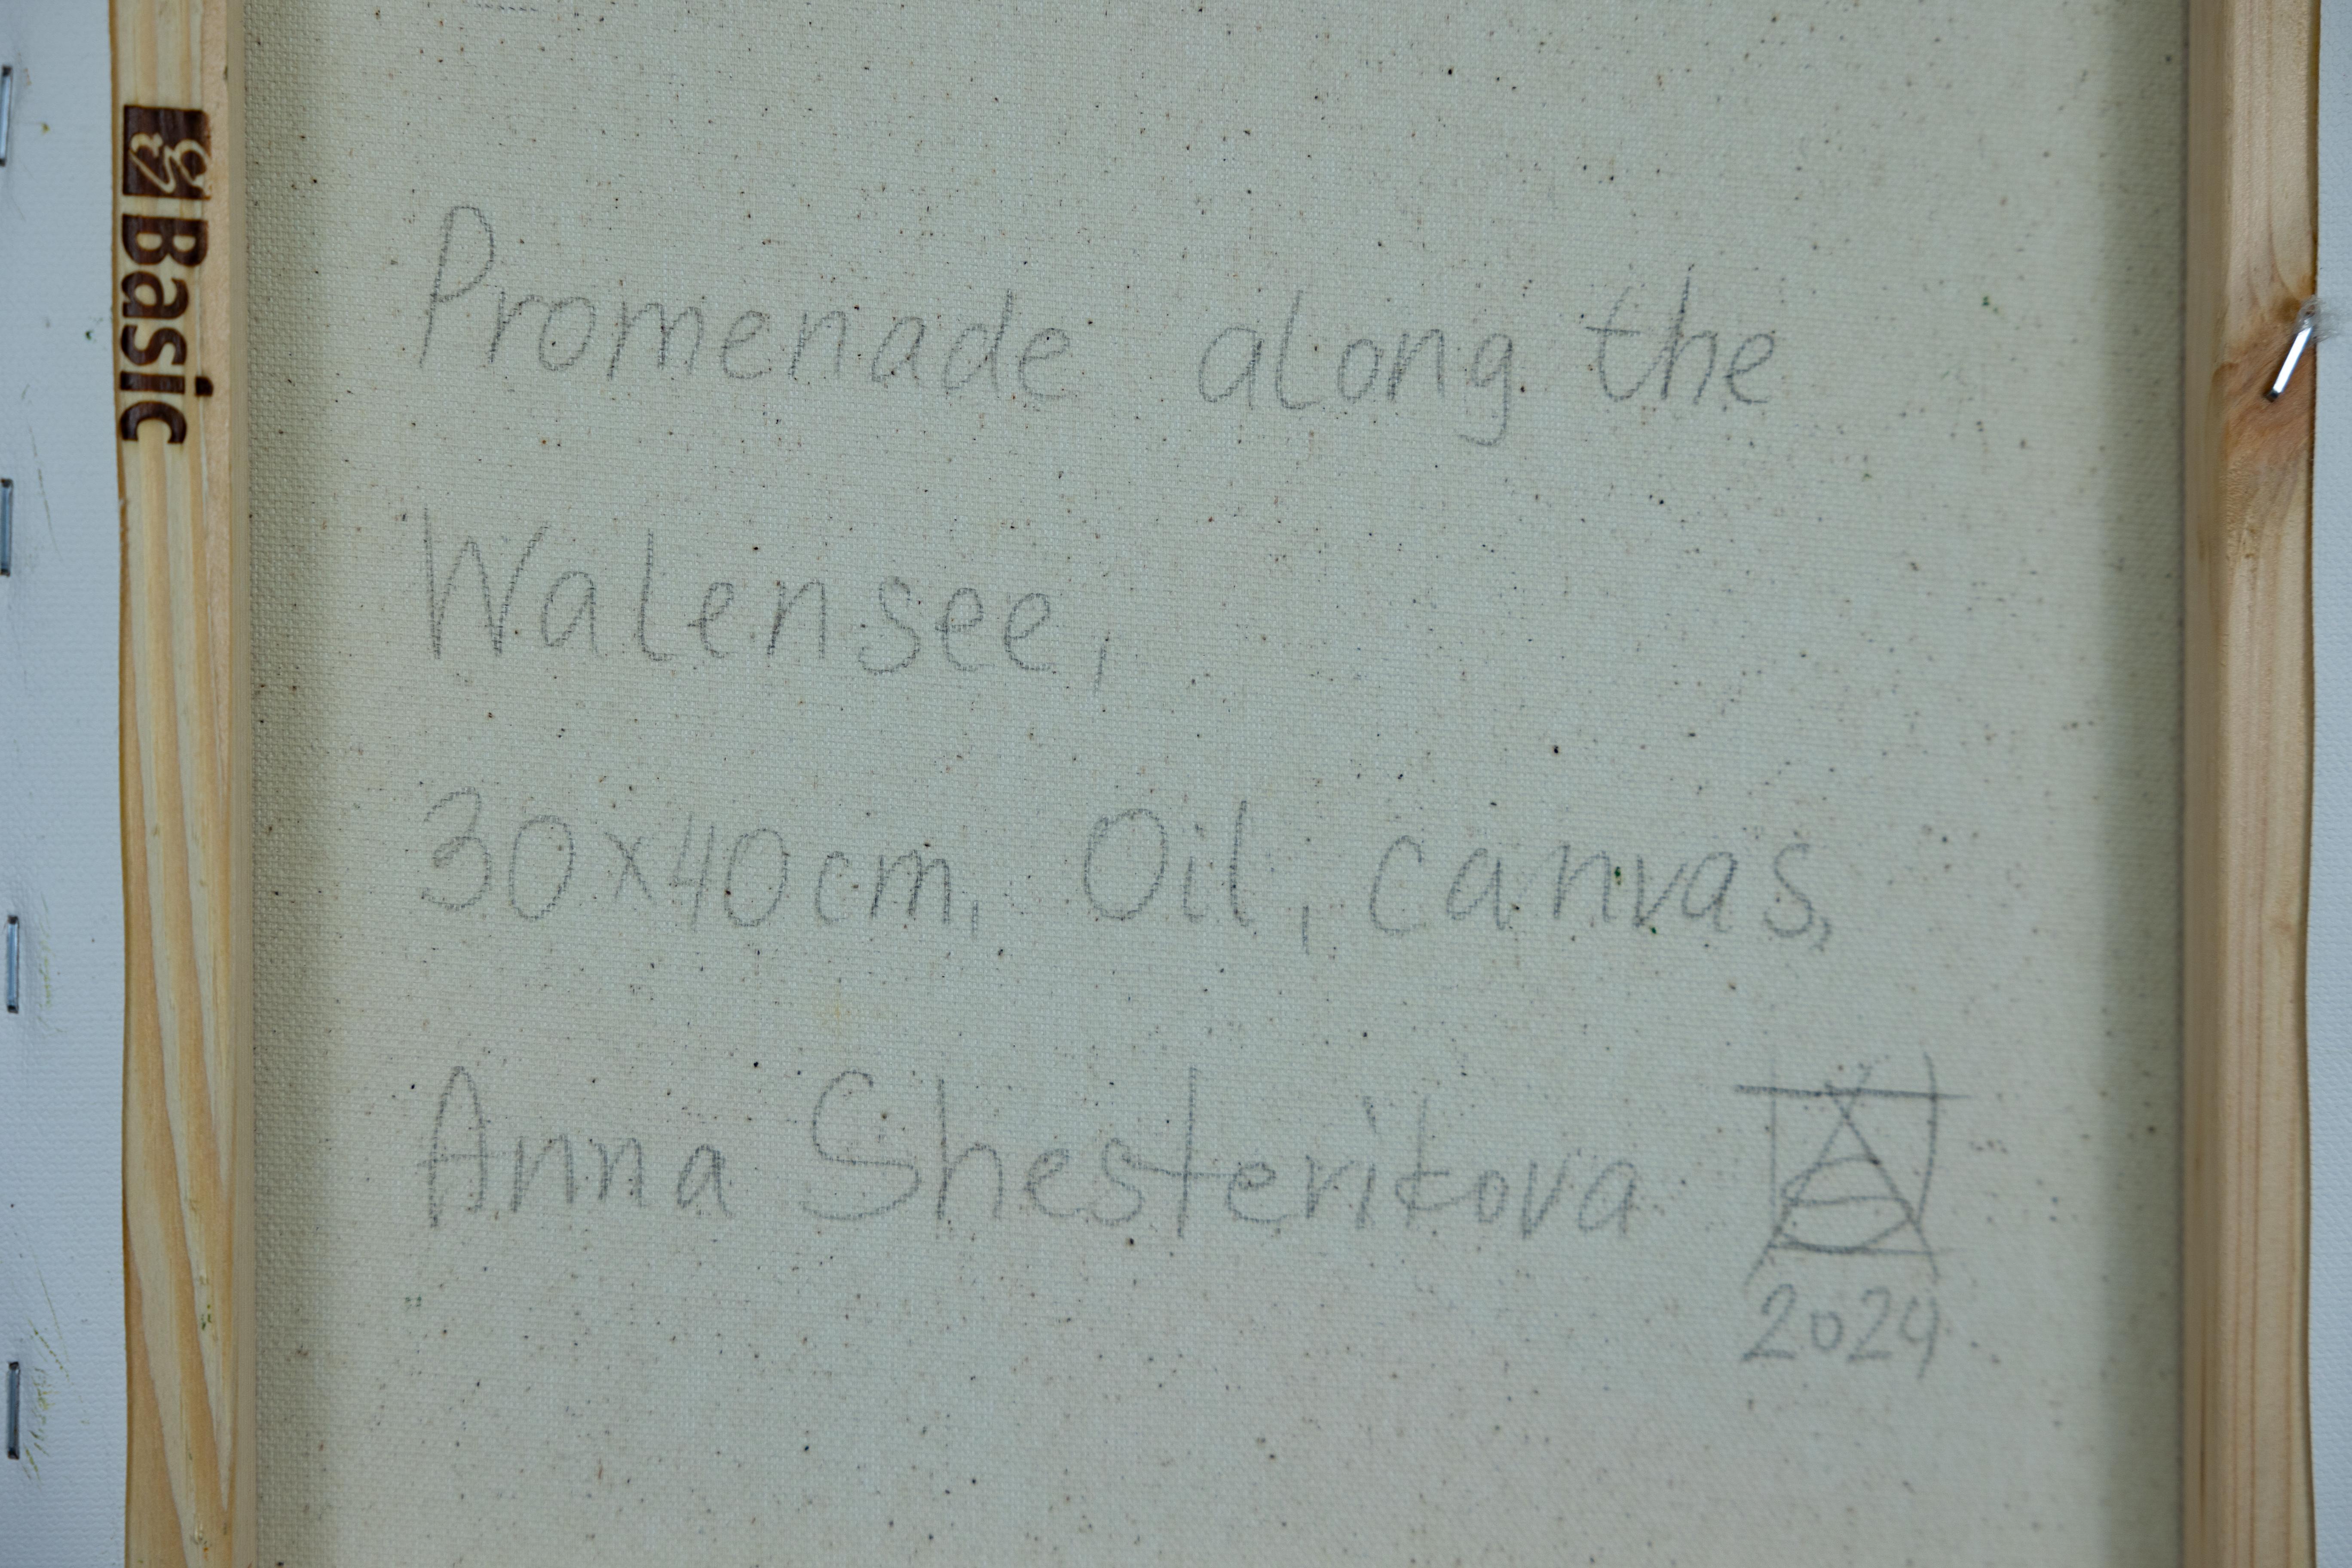 Basic
Promenade along the
Walensee,
30x40cm, Oil, canvas,
Anna Shesterikova
2024